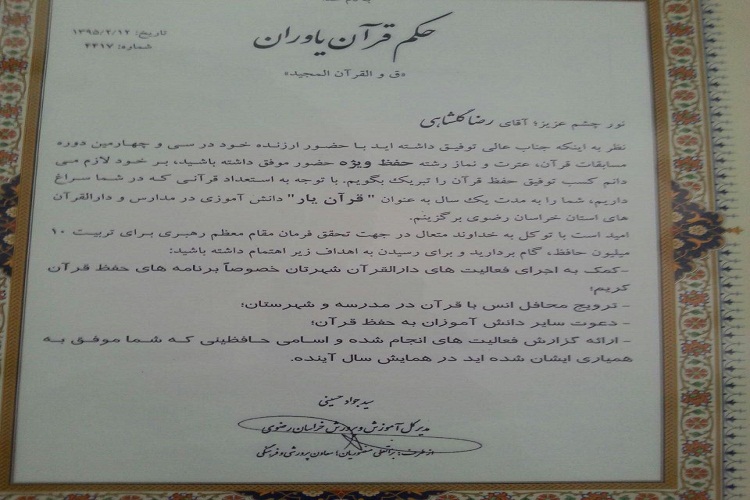 حکم قرآن یاوران
تاریخ: ۱۳۹۵/۲/۱۲
شماره: ۲۴۱۷
«ق و القرآن المجید»
نور چشم عزیز؛ آقای رضا گلشاهی
نظر به اینکه جناب عالی توفیق داشته اید با حضور ارزنده خود در سی و چهارمین دوره
مسابقات قرآن، عترت و نماز رشته حفظ ویژه حضور موفق داشته باشید، بر خود لازم می
دانم کسب توفیق حفظ قرآن را تبریک بگویم. با توجه به استعداد قرآنی که در شما سراغ
داریم، شما را به مدت یک سال به عنوان " قرآن یار" دانش آموزی در مدارس و دارالقرآن
های استان خراسان رضوی برگزینم.
امید است با توکل به خداوند متعال در جهت تحقق فرمان مقام معظم رهبری برای تربیت ۱۰
میلیون حافظ، گام بردارید و برای رسیدن به اهداف زیر اهتمام داشته باشید:
-کمک به اجرای فعالیت های دارالقرآن شهرتان خصوصاً برنامه های حفظ قرآن
کریم؛
- ترویج محافل انس با قرآن در مدرسه و شهرستان؛
- دعوت سایر دانش آموزان به حفظ قرآن؛
- ارائه گزارش فعالیت های انجام شده و اسامی حافظینی که شما موفق به
همیاری ایشان شده اید در همایش سال آینده.
سید جواد حسینی
مدیر کل آموزش و پرورش خراسان رضوی
از طرف: معاون پرورشی و فرهنگی